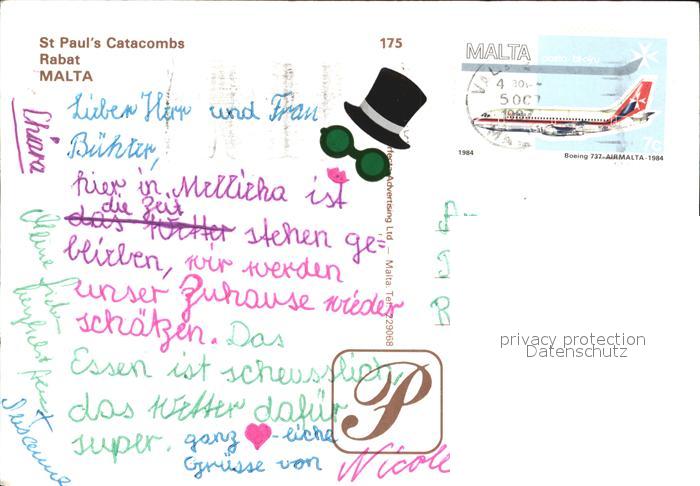 St Paul's Catacombs
Rabat
MALTA
175
MALTA
7c
1984
Boeing 737-AIRMALTA-1984
Lieber Herr und Frau
Bühler,
hier in Mellieha ist
die Zeit
das Wetter stehen ge-
blieben, wir werden
unser Zuhause wieder
schätzen. Das
Essen ist scheusslich,
das Wetter dafür
super. ganz ♥-liche
Grüsse von
Nicole
Chiara
Advertising Ltd — Malta. Tel: 229068
P
privacy protection
Datenschutz